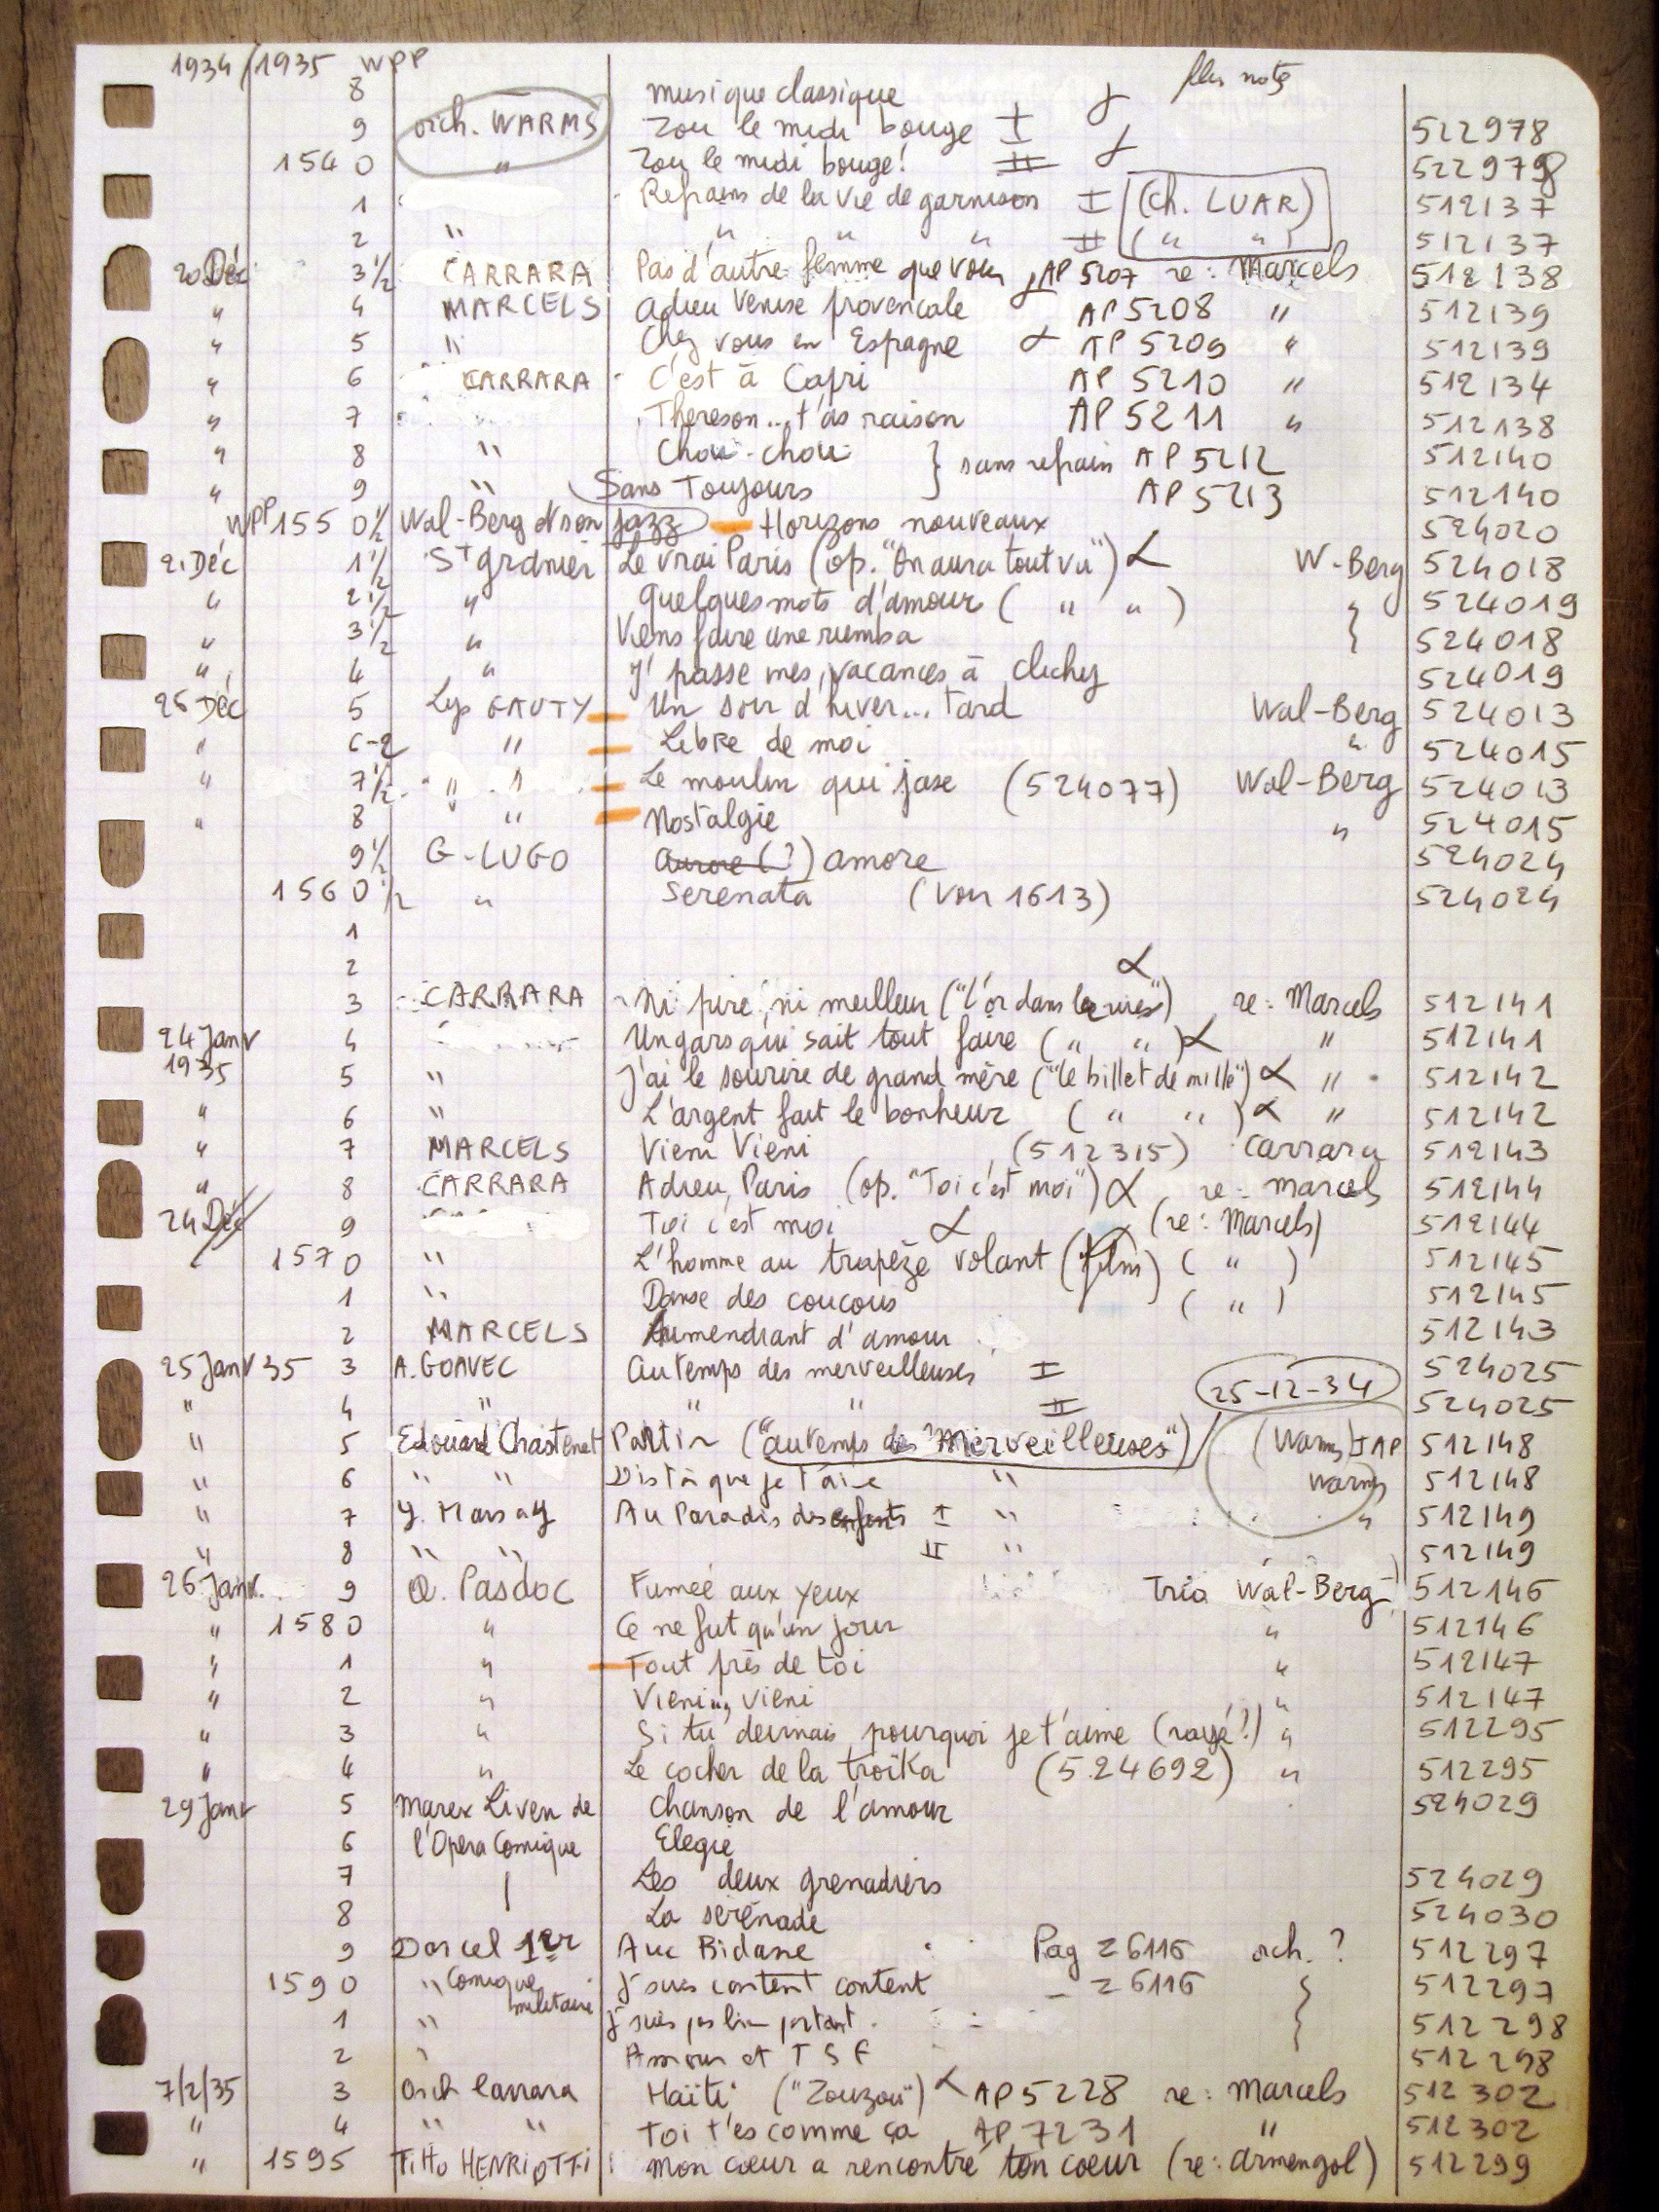 1934/1935 WPP
8 musique classique
9 orch. WARMS Zou le midi bouge I 522978
1540 " Zou le midi bouge! II 522978
1 Refrains de la vie de garnison I (ch. LUAR) 512137
2 " " " " II ( " " ) 512137
20 Déc 3 1/2 CARRARA Pas d'autre femme que vous AP 5207 re: Marcels 512138
" 4 MARCELS Adieu Venise provencale AP 5208 " 512139
" 5 " Chez vous en Espagne α AP 5209 " 512139
" 6 CARRARA C'est à Capri AP 5210 " 512134
" 7 Thereson... t'as raison AP 5211 " 512138
" 8 " Chou-chou } sans refrain AP 5212 512140
" 9 " Sans Toujours AP 5213 512140
WPP 1550 1/2 Wal-Berg et son jazz Horizons nouveaux 524020
21 Déc 1 1/2 St Granier Le vrai Paris (op. "On aura tout vu") α W-Berg 524018
" 2 1/2 " Quelques mots d'amour ( " " ) 524019
" 3 1/2 " Viens faire une rumba 524018
" 4 " J' passe mes vacances à Clichy 524019
26 Déc 5 Lys GAUTY Un soir d'hiver... Tard Wal-Berg 524013
" 6-2 " Libre de moi " 524015
" 7 1/2 " " Le moulin qui jase (524077) Wal-Berg 524013
" 8 " " Nostalgie " 524015
9 1/2 G-LUGO Aurore (?) amore 524024
1560 1/2 " Serenata (voir 1613) 524024
1
2
3 CARRARA Ni pire, ni meilleur ("l'or dans la rue") α re: Marcels 512141
24 Janv 4 Un gars qui sait tout faire ( " " ) α " 512141
1935 5 " J'ai le sourire de grand mère ("le billet de mille") α " 512142
" 6 " L'argent fait le bonheur ( " " ) α " 512142
" 7 MARCELS Vieni Vieni (512315) Carrara 512143
" 8 CARRARA Adieu, Paris (op. "Toi c'est moi") α re: Marcels 512144
24 Déc 9 Toi c'est moi α (re: Marcels) 512144
1570 " L'homme au trapèze volant (film) ( " ) 512145
1 " Danse des coucous ( " ) 512145
2 MARCELS d'amour 512143
25 Janv 35 3 A. GOAVEC Au temps des merveilleuses I 524025
25-12-34
" 4 " " " II 524025
" 5 Edouard Chastenet Partir ("au temps des Merveilleuses") (Warms) JAP 512148
" 6 " " Dis que je t'aime " Warms 512148
" 7 Y. Marsay Au Paradis des enfants I " " 512149
" 8 " " II " 512149
26 Janv. 9 A. Pasdoc Fumée aux yeux Trio Wal-Berg 512146
" 1580 " Ce ne fut qu'un jour " 512146
" 1 " Tout près de toi " 512147
" 2 " Vieni, vieni " 512147
" 3 " Si tu pourquoi je t'aime (rayé?) " 512295
" 4 " Le cocher de la troïka (524692) " 512295
29 Janv 5 Marex Liven de Chanson de l'amour 524029
6 l'Opera Comique Elegie
7 Les deux grenadiers 524029
8 La sérénade 524030
9 Darcel 1er Auc Bidane Pag Z6116 orch. ? 512297
1590 " Comique J'suis content content _ Z6116 512297
militaire
1 " J'suis pas bien portant 512298
2 " Amour et TSF 512298
7/2/35 3 Orch Carrara Haïti ("Zouzou") α AP 5228 re: Marcels 512302
" 4 " " Toi t'es comme ça AP 7231 " 512302
" 1595 TiTTo HENRiOTTi mon cœur a rencontré ton cœur (re: Armengol) 512299